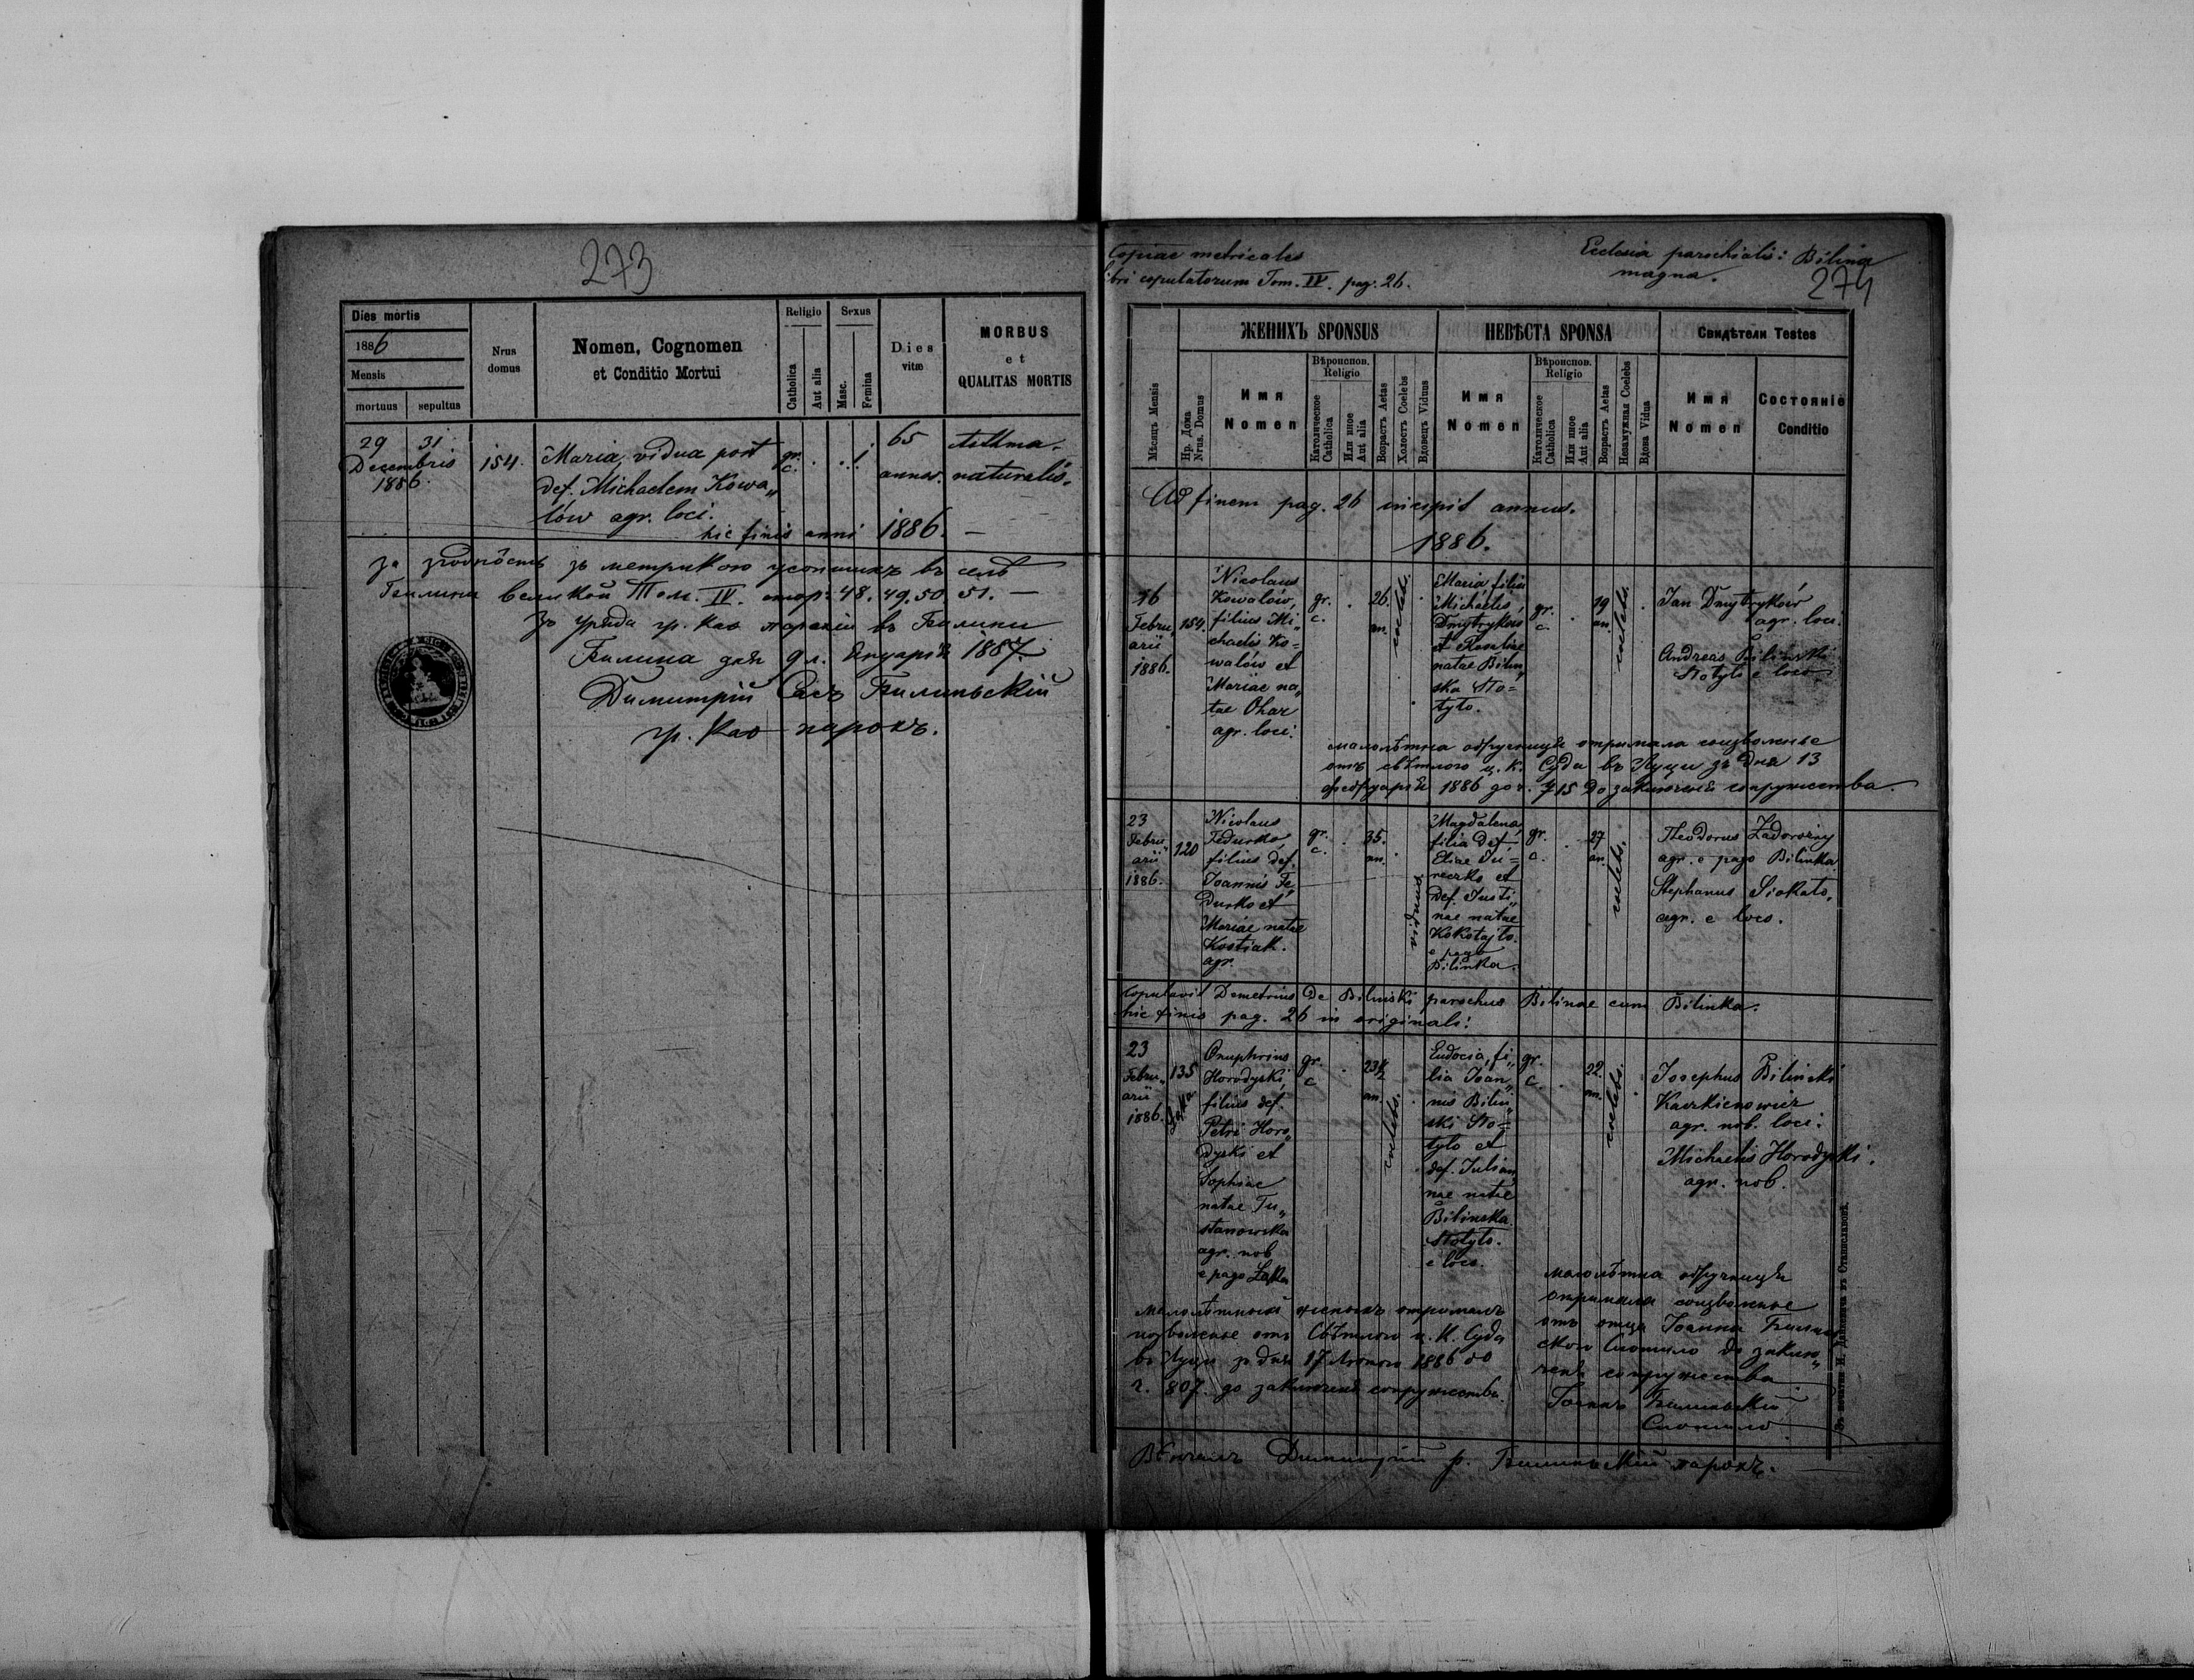 273
Dies mortis
1886
Mensis
mortuus sepultus
Nrus
domus
Nomen, Cognomen
et Conditio Mortui
Religio
Catholica
Aut alia
Sexus
Masc.
Femina
Dies
vitæ
MORBUS
et
QUALITAS MORTIS
29 31
Decembris
1886
154.
Maria, vidua post
def. Michaelem Kowa„
lów agr. loci.
gr.
c.
1
65
annor.
Asthma
naturalis.
hic finis anni 1886. —
За згодность зъ метрикою усопшихъ въ селѣ
Билини великой Том. IV. стор. 48. 49. 50. 51. —
Зъ уряда гр. кат парохіи въ Билини
Билина дня 9л. Януарія 1887.
Димитрій Сасъ Билиньскій
гр. кат парохъ.
Copiae metricales
libri copulatorum Tom. IV. pag. 26.
Ecclesia parochialis: Bilina
magna.
274
ЖЕНИХЪ SPONSUS
НЕВѢСТА SPONSA
Свидѣтели Testes
Мѣсяцъ Mensis
Нр. Дома
Nrus. Domus
Имя
Nomen
Вѣроиспов.
Religio
Католическое
Catholica
Или иное
Aut alia
Возрастъ Aetas
Холостъ Coelebs
Вдовецъ Viduus
Имя
Nomen
Вѣроиспов.
Religio
Католическое
Catholica
Или иное
Aut alia
Возрастъ Aetas
Незамужная Coelebs
Вдова Vidua
Имя
Nomen
Состояніе
Conditio
Ad finem pag. 26 incipit annus.
1886.
16
Febru„
arii
1886.
154.
Nicolaus
Kowalów,
filius Mi„
chaelis Ko=
walów et
Mariae na„
tae Ohar
agr. loci.
gr.
c.
26.
an.
coelebs.
Maria, filia
Michaelis
Dmytryków
et Rosaliae
natae Bilin„
ska Sto=
tyło.
gr.
c.
19
an.
coelebs.
Jan Dmytryków
agr. loci.
Andreas Biliński
Stotyło e loco.
малолѣтна обручниця отримала соизволеніе
отъ свѣтлого ц. к. Суда въ Луцѣ зъ дня 13
февруарія 1886 до ч. 715 до заключенія супружества.
23
Febru„
arii
1886.
120
Nicolaus
Fedurko,
filius def.
Joannis Fe„
durko et
Mariae natae
Kostiak.
agr.
gr.
c.
35.
an.
viduus
Magdalena,
filia def.
Eliae
et
def. Justi„
nae natae
Kokotajło.
e pago
Bilinka.
gr.
c.
27
an.
coelebs.
Theodorus Zadorożny
agr. e pago Bilinka
Stephanus Siokało,
agr. e loco.
Copulavit Demetrius De Biliński parochus Bilinae cum Bilinka.
hic finis pag. 26 in originali.
23
Febru„
arii
1886.
135
Łąka
Onuphrius
Horodyski,
filius def.
Petri Horo„
dyski et
Sophiae
natae Tu„
stanowska
agr. nob
e pago Łąka
gr.
c
23½
an.
coelebs.
Eudocia, fi„
lia Joan„
nis Biliń„
ski Sto=
tyło et
def. Julian„
nae natae
Bilinska
Stotyło.
e loco.
gr.
c.
22.
an.
coelebs.
Josephus Biliński
Kaczkienowicz
agr. nob. loci.
Michaelis Horodyski.
agr. nob.
малолѣтный женихъ отрималъ
позволеніе отъ Свѣтлого ц. К. Суда
въ Луцѣ зъ дня 17 Лютого 1886 до
ч. 807. до заключенія супружества.
малолѣтна обручниця
отримала соизволеніе
отъ отца Іоанна Билинь„
ского Стотило до заклю„
ченія супружества
Іоаннъ Билиньскій
Стотило
Вѣнчалъ Димитрій Билиньскій парохъ.
Въ печатни И. Данкевича въ Станиславовѣ.